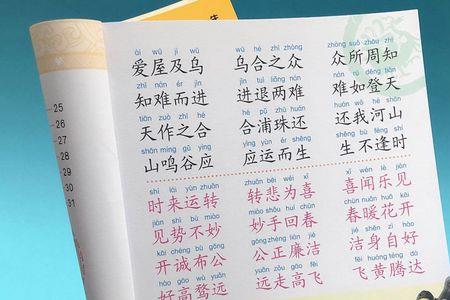 25
26
29
30
31
ài wū jí wū wū hé zhī zhòng zhòng suǒ zhōu zhī
爱屋及乌 乌合之众 众所周知
zhī nán ér jìn jìn tuì liǎng nán nán rú dēng tiān
知难而进 进退两难 难如登天
tiān zuò zhī hé hé pǔ zhū huán huán wǒ hé shān
天作之合 合浦珠还 还我河山
shān míng gǔ yìng yìng yùn ér shēng shēng bù féng shí
山鸣谷应 应运而生 生不逢时
shí lái yùn zhuǎn zhuǎn bēi wéi xǐ xǐ wén lè jiàn
时来运转 转悲为喜 喜闻乐见
jiàn shì bù miào miào shǒu huí chūn chūn nuǎn huā kāi
见势不妙 妙手回春 春暖花开
kāi chéng bù gōng gōng zhèng lián jié jié shēn zì hào
开诚布公 公正廉洁 洁身自好
hào gāo wù yuǎn yuǎn zǒu gāo fēi fēi huáng téng dá
好高骛远 远走高飞 飞黄腾达